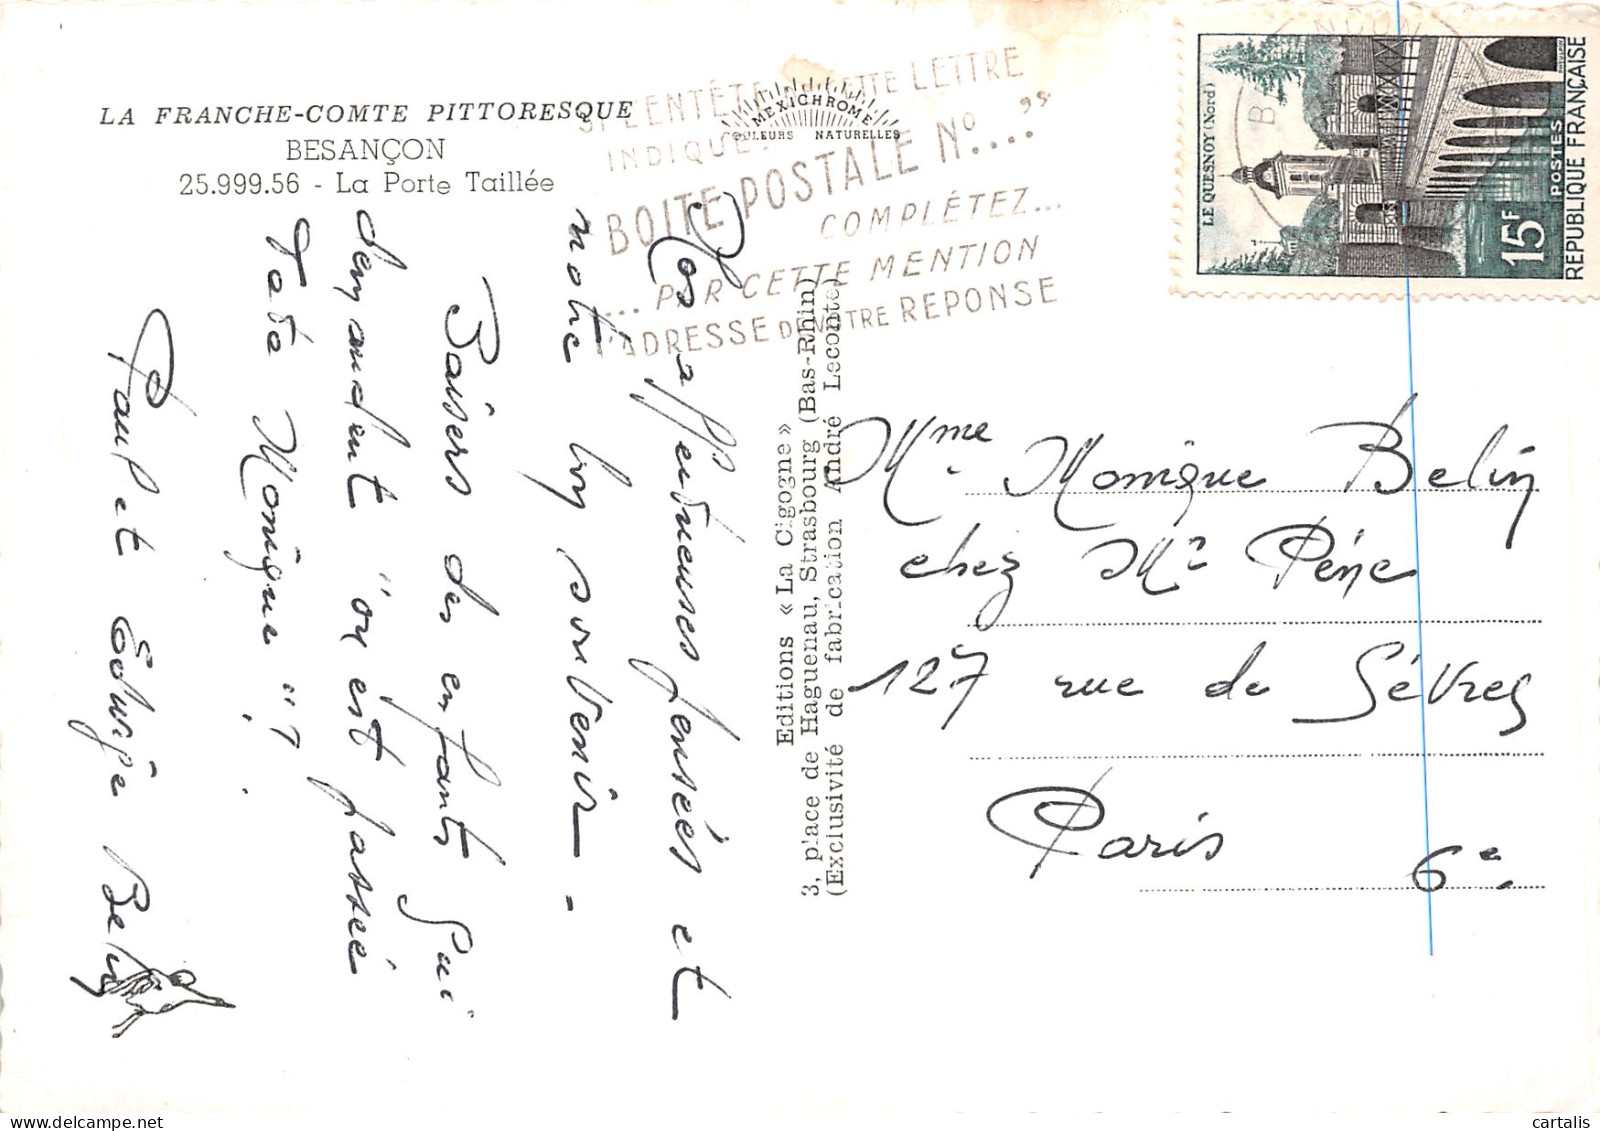 LA FRANCHE-COMTE PITTORESQUE
BESANÇON
25.999.56 - La Porte Taillée
MEXICHROME
COULEURS NATURELLES
SI L'ENTÊTE DE CETTE LETTRE
INDIQUE:
BOITE POSTALE No...."
COMPLÉTEZ...
... PAR CETTE MENTION
L'ADRESSE DE VOTRE REPONSE
LE QUESNOY (Nord)
15F
POSTES
REPUBLIQUE FRANÇAISE
Nos affectueuses pensées et
notre bon souvenir -
Baisers des enfants qui
demandent "où est passée
Tata Monique" ?
Paul et Edwige Belin
Editions « La Cigogne »
3, place de Haguenau, Strasbourg (Bas-Rhin)
(Exclusivité de fabrication André Leconte)
Mme Monique Belin
chez Mr Pène
127 rue de Sèvres
Paris 6e.
cartalis
delcampe.net